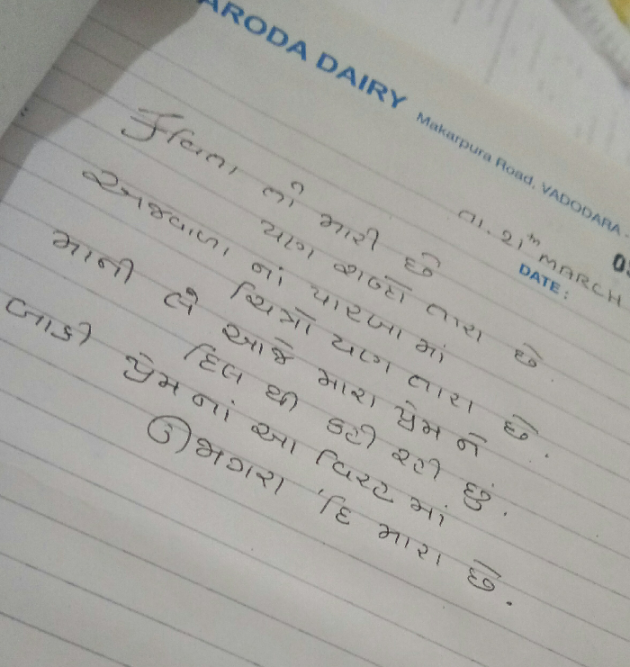 ARODA DAIRY
Makarpura Road, VADODARA -
તા. 21th MARCH
DATE:
કવિતા તો મારી છે
પણ શબ્દો તારા છે.
અજવાળા નાં પારખા માં
ચિત્રો પણ તારા છે.
માની લે આજે મારા પ્રેમ ને
દિલ થી કહી રહી છું.
બાકી પ્રેમ નાં આ વિરહ માં
ઉભગરા 'દિ મારા છે.